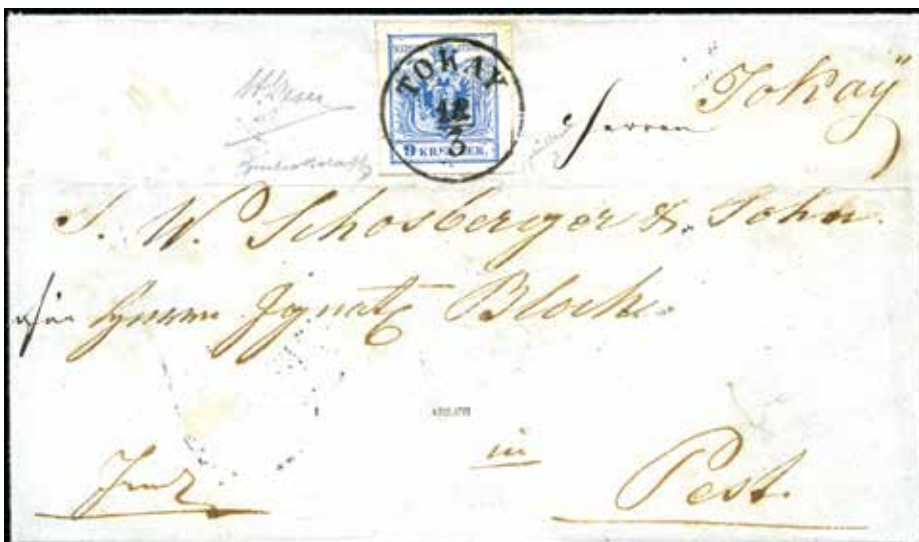 TOKAY
18
3
9 KREUZER.
Tokaÿ
Herren
S. W. Schosberger & Sohn
für Herrn Ignatz Bloch
in
Pest.